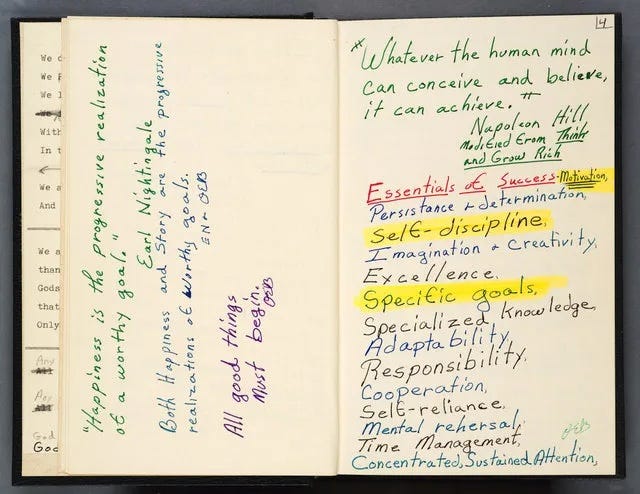 We
We
We
With
In t
We a
And
We a
than
Gods
that
Only
Any
All
All
God
Goo
"Happiness is the progressive realization
of a worthy goal."
Earl Nightingale
Both Happiness and Story are the progressive
realizations of worthy goals.
EN & OEB
All good things
must begin.
OEB
14
*"Whatever the human mind
can conceive and believe,
it can achieve."
Napoleon Hill
Modified From Think
and Grow Rich
Essentials of Success-Motivation,
Persistance & determination,
Self-discipline,
Imagination & Creativity,
Excellence.
Specific goals,
Specialized Knowledge,
Adaptability,
Responsibility.
Cooperation,
Self-reliance.
Mental rehersal,
OEB
Time Management,
Concentrated, Sustained Attention,